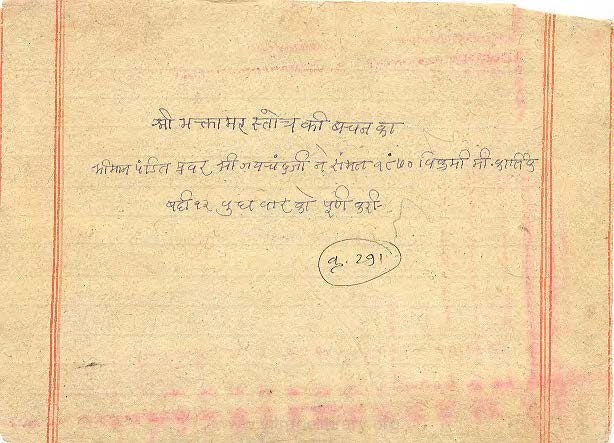 श्री भक्तामर स्तोत्र की बचनका
श्रीमान पंडित प्रवर श्री जयचंदजी ने संमत १८७० विक्रमी मी. कार्तिक
बदी १२ बुधवार को पूर्ण करी
वृ. 291